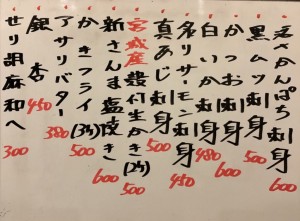 活〆かんぱち刺身 600
黒ムツ刺身 500
かつお刺身 600
白いか刺身 480
炙りサーモン刺身 450
真あじ刺身 500
宮城産殻付生かき(2ヶ) 500
新さんま塩焼き 600
かきフライ(3ヶ) 500
アサリバター 380
銀杏 450
せり胡麻和へ 300